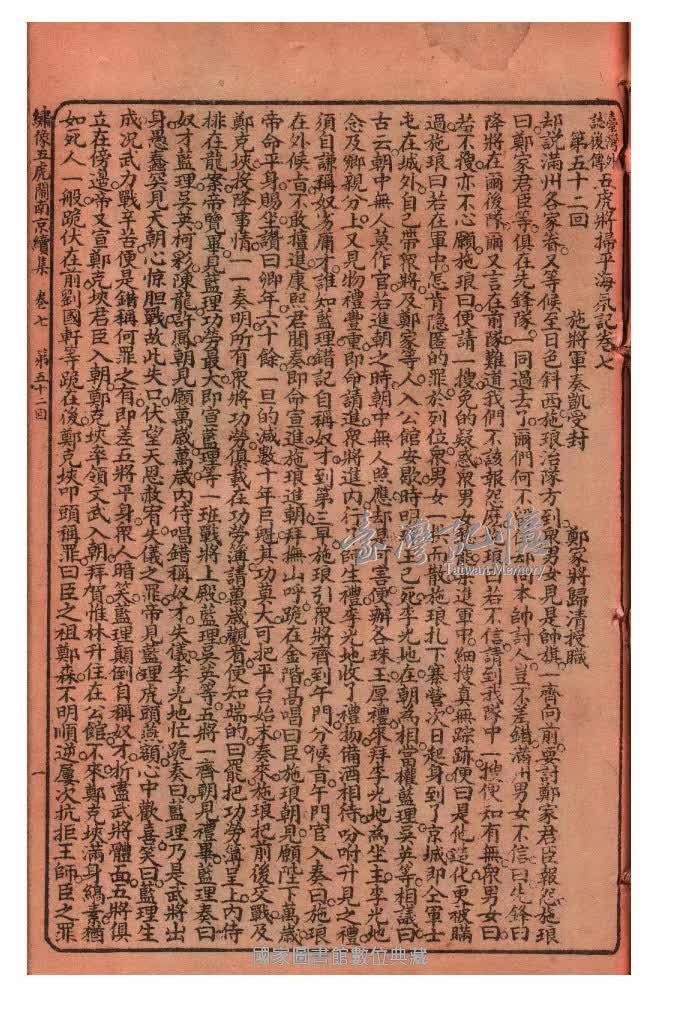 臺灣外誌後傳五虎將掃平海氛記卷七
第五十二回 施將軍奏凱受封 鄭家將歸清授職
却說滿州各家眷又等候至日色斜西施琅治隊方到衆男女見是帥旗一齊向前要討鄭家君臣報怨施琅
曰鄭家君臣等俱在先鋒隊一同過去了爾們何不 却向本帥討人豈不差錯滿州男女不信曰先鋒曰
降將在爾後隊爾又言在前隊難道我們不該報怨麽 琅曰若不信請到我隊中一搜便知有無衆男女曰
若不搜亦不心願施琅曰便請一搜免的疑惑衆男女 進軍中細搜真無踪跡便曰是他造化更被瞞
過施琅曰若在軍中怎肯隐匿的罪於列位衆男女一哄而散施琅扎下寨營次日起身到了京城即仝軍士
屯在城外自己帶衆將及鄭家等人入公館安歇時明 已死李光地在朝為相當權藍理吳英等相議曰
古云朝中無人莫作官若進朝之時朝中無人照應却是 害便辦各珠玉厚禮來拜李光地為坐主李光地
念及鄉親分上又見物禮豐重即命請進衆將進內行師生禮李光地收了禮物備酒相待吩咐升見之禮
須自謙稱奴才劣庸才誰如藍理錯記自稱奴才到第三早施琅引衆將齊到午門分候旨午門官入奏曰施琅
在外候旨不敢擅進康熙君聞奏即命宣進施琅進朝拜撫山呼跪在金階高唱曰臣施琅朝見願陛下萬歲
帝命平身賜坐讚曰卿年六十餘一旦的滅數十年巨魁其功莫大可把平台始末奏來施琅把前後交戰及
鄭克塽投降事情一一奏明所有衆將功勞俱載在功勞簿請萬歲觀看便知端的曰罷把功勞簿呈上內侍
排在龍案帝覽畢見藍理功勞最大即宣藍理等一班戰將上殿藍理吳英等五將一齊朝見禮畢藍理奏曰
奴才藍理吳英柯彩陳龍許鳳朝見願萬歲萬歲內侍唱錯稱奴才失儀李光地忙跪奏曰藍理乃是武將出
身愚蠢突見天朝心惊胆戰故此失口伏望天恩赦宥失儀之罪帝見藍理虎頭燕頷心中歡喜笑曰藍理生
成况武力戰辛苦便是錯稱何罪之有即差五將平身衆人暗笑藍理顛倒自稱奴才折盡武將體面五將俱
立在傍邊帝又宣鄭克塽君臣入朝鄭克塽率領文武入朝拜賀惟林升住在公館不來鄭克塽滿身縞素猶
如死人一般跪伏在前劉國軒等跪在後鄭克塽叩頭稱罪曰臣之祖鄭森不明順逆屢次抗拒王師臣之罪
繡像五虎鬧南京續集 卷七 第五十二回 一
臺灣記憶
Taiwan Memory
國家圖書館數位典藏